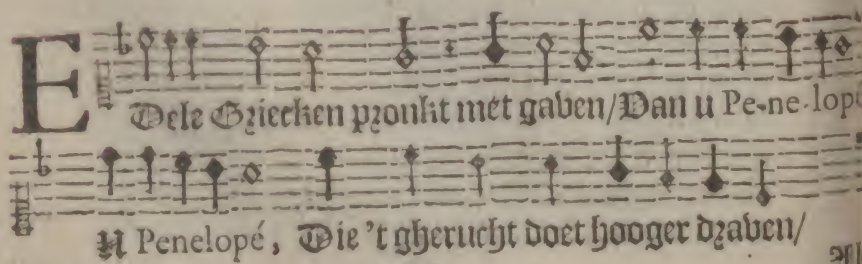 EDele Griecken pronkt met gaben/Dan u Pe-ne-lopé
U Penelopé, Die 't gherucht doet hooger draben/